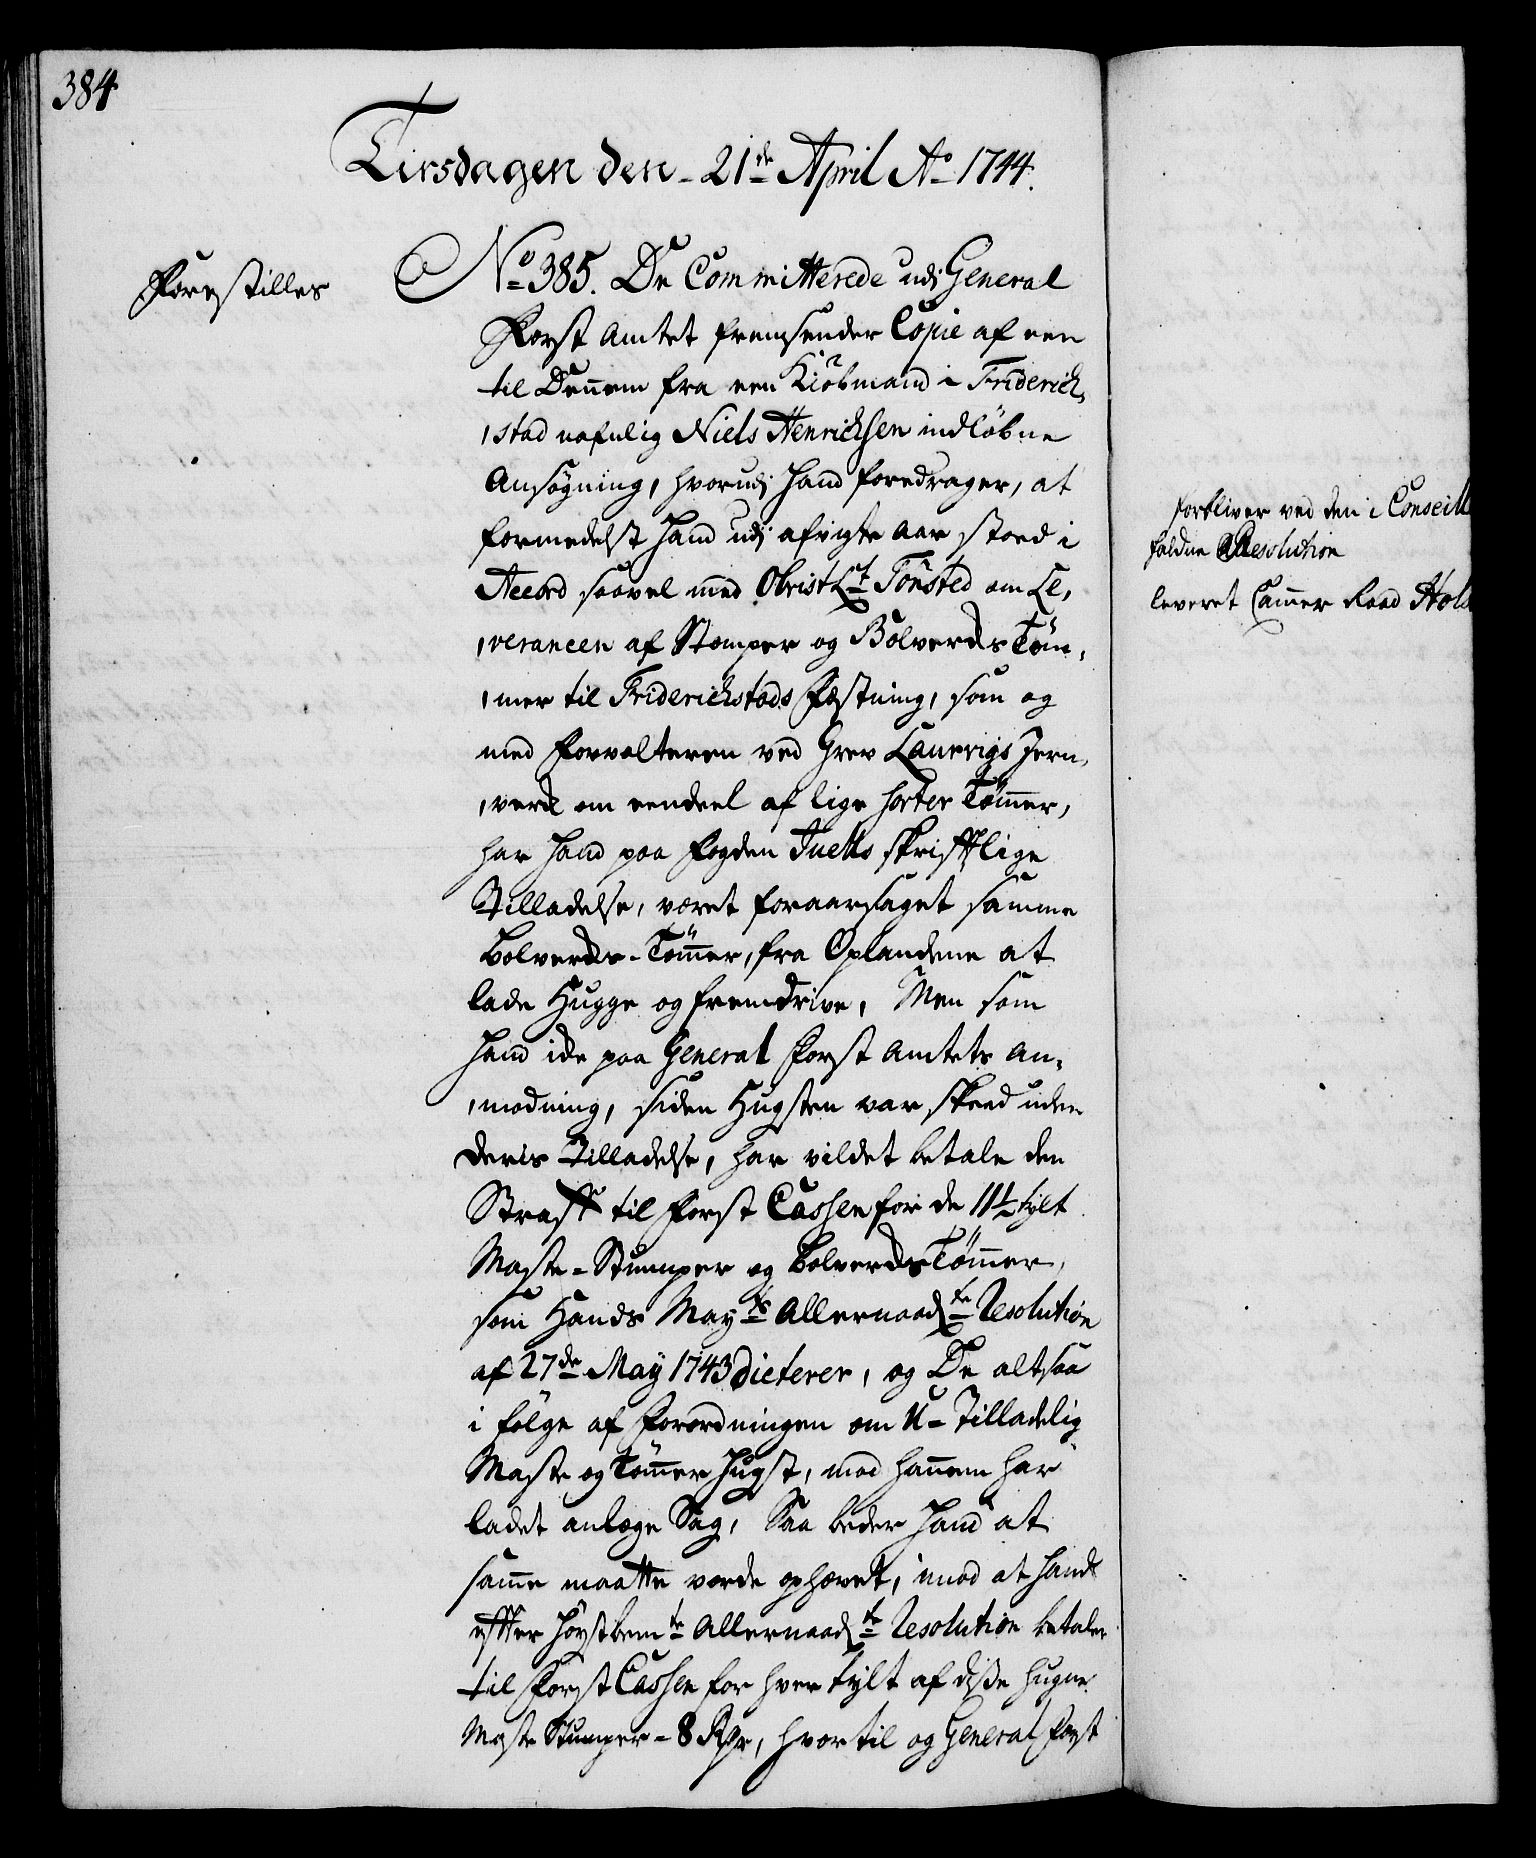 384
Tirsdagen den 21de April Ao 1744.
Forestilles
No 385. De Committerede udi General
Forst Amtet fremsender Copie af een
til Dennem fra een Kiöbmand i Friderich,
,stad nafnlig Niels Henrichsen indløbne
Ansøgning, hvorudi hand foredrager, at
formedelst hand udi afvigte Aar stoed i
Accord saavel med ObristLt Tønsted om Le,
,verancen af Stomper og Bolverchs Töm,
,mer til Friderichstads Fæstning, som og
med Forvalteren ved Grev Laurvigs Jern,
,verck om eendeel af lige sorter Tömmer,
har hand paa Fogden Tuells skrifftlige
Tilladelse, været foraarsaget samme
Bolverchs-Tömmer, fra Oplandene at
lade Hugge og fremdrive, Men som
hand icke paa General Forst Amtets An,
,modning, siden Hugsten var skeed uden
deris Tilladelse, har vildet betale den
Straff til Forst Cassen for de 11½ tylt
Maste-Stumper og Bolverchs Tömmer,
som Hands Mayts Allernaadte Resolution
af 27de May 1743 dicterer, og De altsaa
i følge af Forordningen om U-Tilladelig
Maste og Tömmer Hugst, mod hannem har
ladet anlæge Sag, Saa beder hand at
samme maatte vorde ophævet, imod at hand
effter høystbemte Allernaadte Resolution betaler
til Forst Cassen for hver tylt af disse hugne
Maste Stumper - 8 Rdr, hvortil og General Forst
forbliver ved den i Conseill
faldne Resolution
leveret Cammer Raad Hols